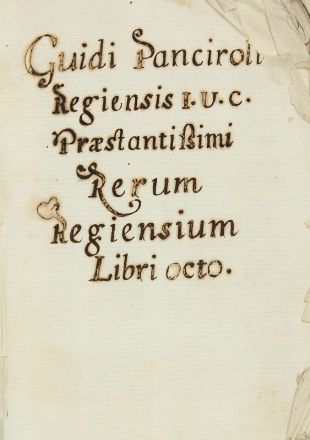 Guidi Panciroli
Regiensis I.U.C.
Præstantißimi
Rerum
Regiensium
Libri octo.